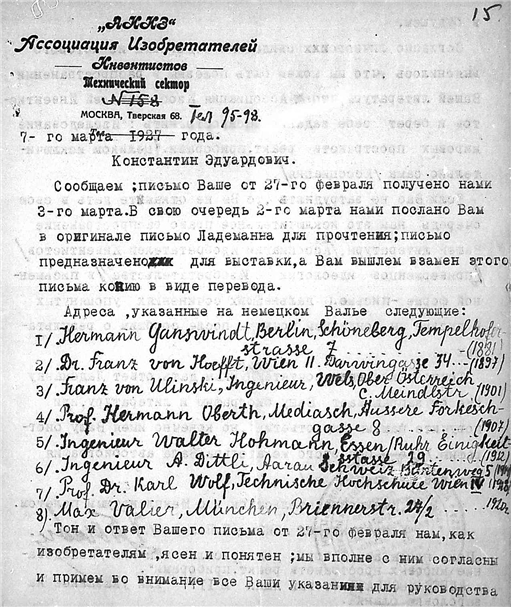 15.
„АИИЗ“
Ассоциация Изобретателей
Инвентистов
Технический сектор
№ 158
МОСКВА, Тверская 68. Тел 95-98.
7- го марта 1927 года.
Константин Эдуардович.
Сообщаем ;письмо Ваше от 27-го февраля получено нами
3-го марта.В свою очередь 2-го марта нами послано Вам
в оригинале письмо Ладеманна для прочтения;письмо
предназначено для выставки,а Вам вышлем взамен этого
письма копию в виде перевода.
Адреса ,указанные на немецком Валье следующие:
1/ Hermann Ganswindt, Berlin, Schöneberg, Tempelhofer-
strasse 7 (1881)
2/ Dr. Franz von Hoefft, Wien II. Darwingasse 34 (1897)
3/ Franz von Ulinski, Ingenieur, Wels, Ober Österreich
C. Meindlstr (1901)
4/ Prof. Hermann Oberth, Mediasch, Äussere Forkesch-
gasse 8 (1907)
5/ Ingenieur Walter Hohmann, Essen/Ruhr Einigkeit-
sstasse 29 (1912)
6/ Ingenieur A. Dittli, Aarau Schweiz Bärtenweg 5
7/ Prof. Dr. Karl Wolf, Technische Hochschule Wien IV
8) Max Valier, München, Briennerstr. 24/2
Тон и ответ Вашего письма от 27-го февраля нам, как
изобретателям ,ясен и понятен ;мы вполне с ним согласны
и примем во внимание все Ваши указания для руководства